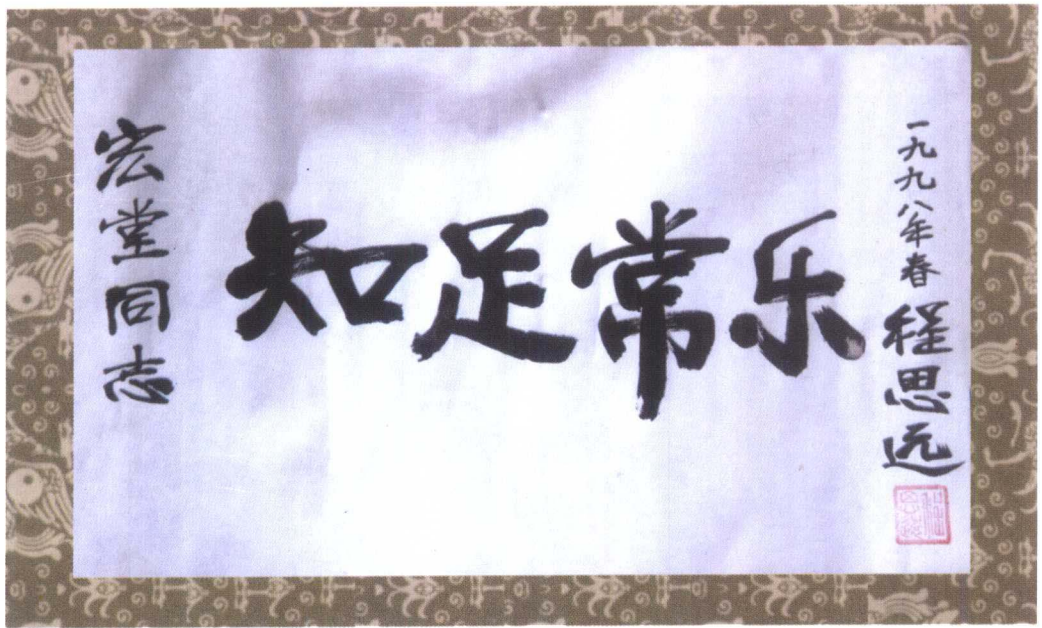 宏堂同志
知足常乐
一九九八年春
程思远